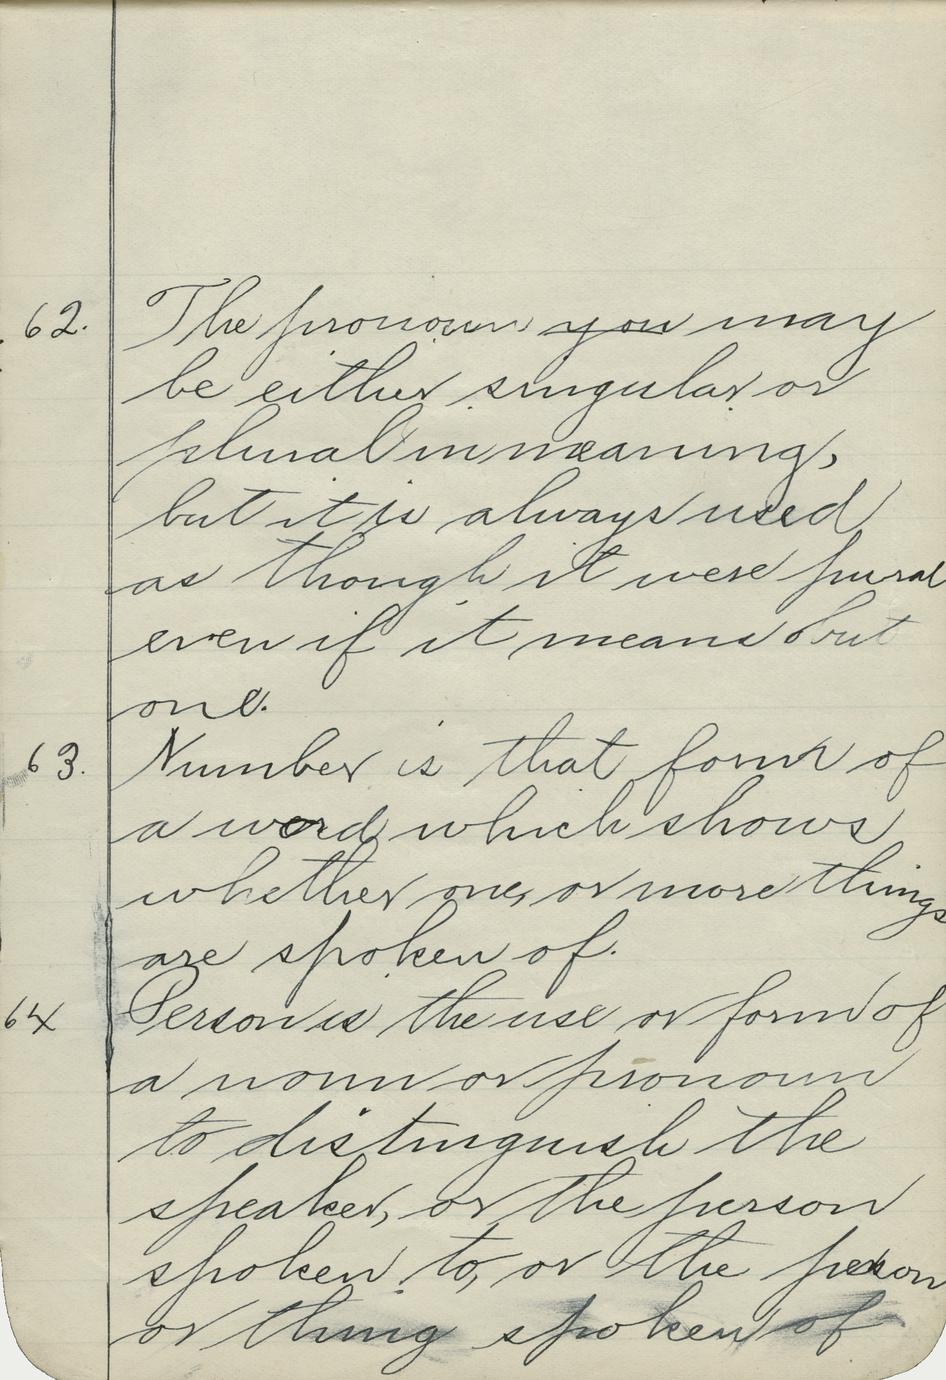 62. The pronoun you may
be either singular or
plural in meaning,
but it is always used
as though it were pural
even if it means but
one.
63. Number is that form of
a word which shows
whether one, or more things
are spoken of.
64 Person is the use or form of
a noun or pronoun
to distinguish the
speaker, or the person
spoken to, or the person
or thing spoken of